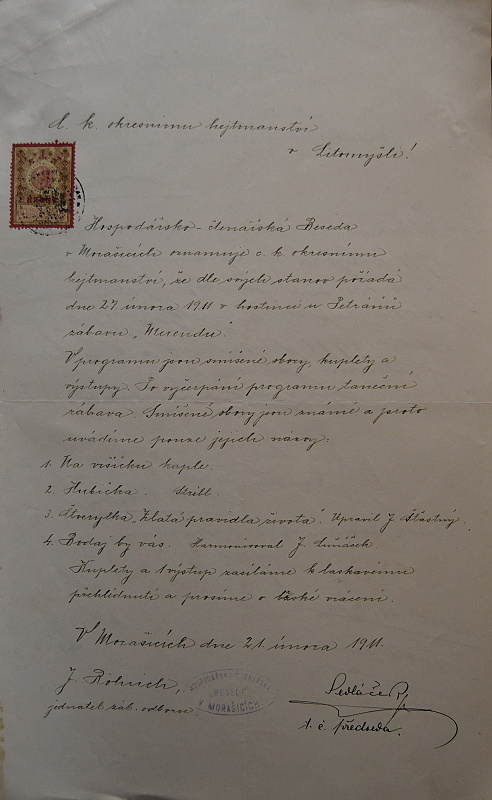 C. k. okresnímu hejtmanství
v Litomyšli!
Hospodářsko-čtenářská Beseda
v Morašicích oznamuje c. k. okresnímu
hejtmanství, že dle svých stanov pořádá
dne 27. února 1911 v hostinci u Petráňů
zábavu „Merendu“.
V programu jsou smíšené sbory, kuplety a
výstupy. Po vyčerpání programu taneční
zábava. Smíšené sbory jsou známé a proto
uvádíme pouze jejich názvy:
1. Na vršíčku kaple.
2. Hubička.
3. Čtverylka „Zlatá pravidla života“. Upravil J. Šťastný.
4. Bodaj by vás. Harmonisoval J.
Kuplety a 1 výstup zasíláme k laskavému
přehlédnutí a prosíme o brzké vrácení.
V Morašicích dne 21. února 1911.
J.
jednatel záb. odboru
BESEDA
V MORAŠICÍCH
Sedláček,
t. č. předseda.